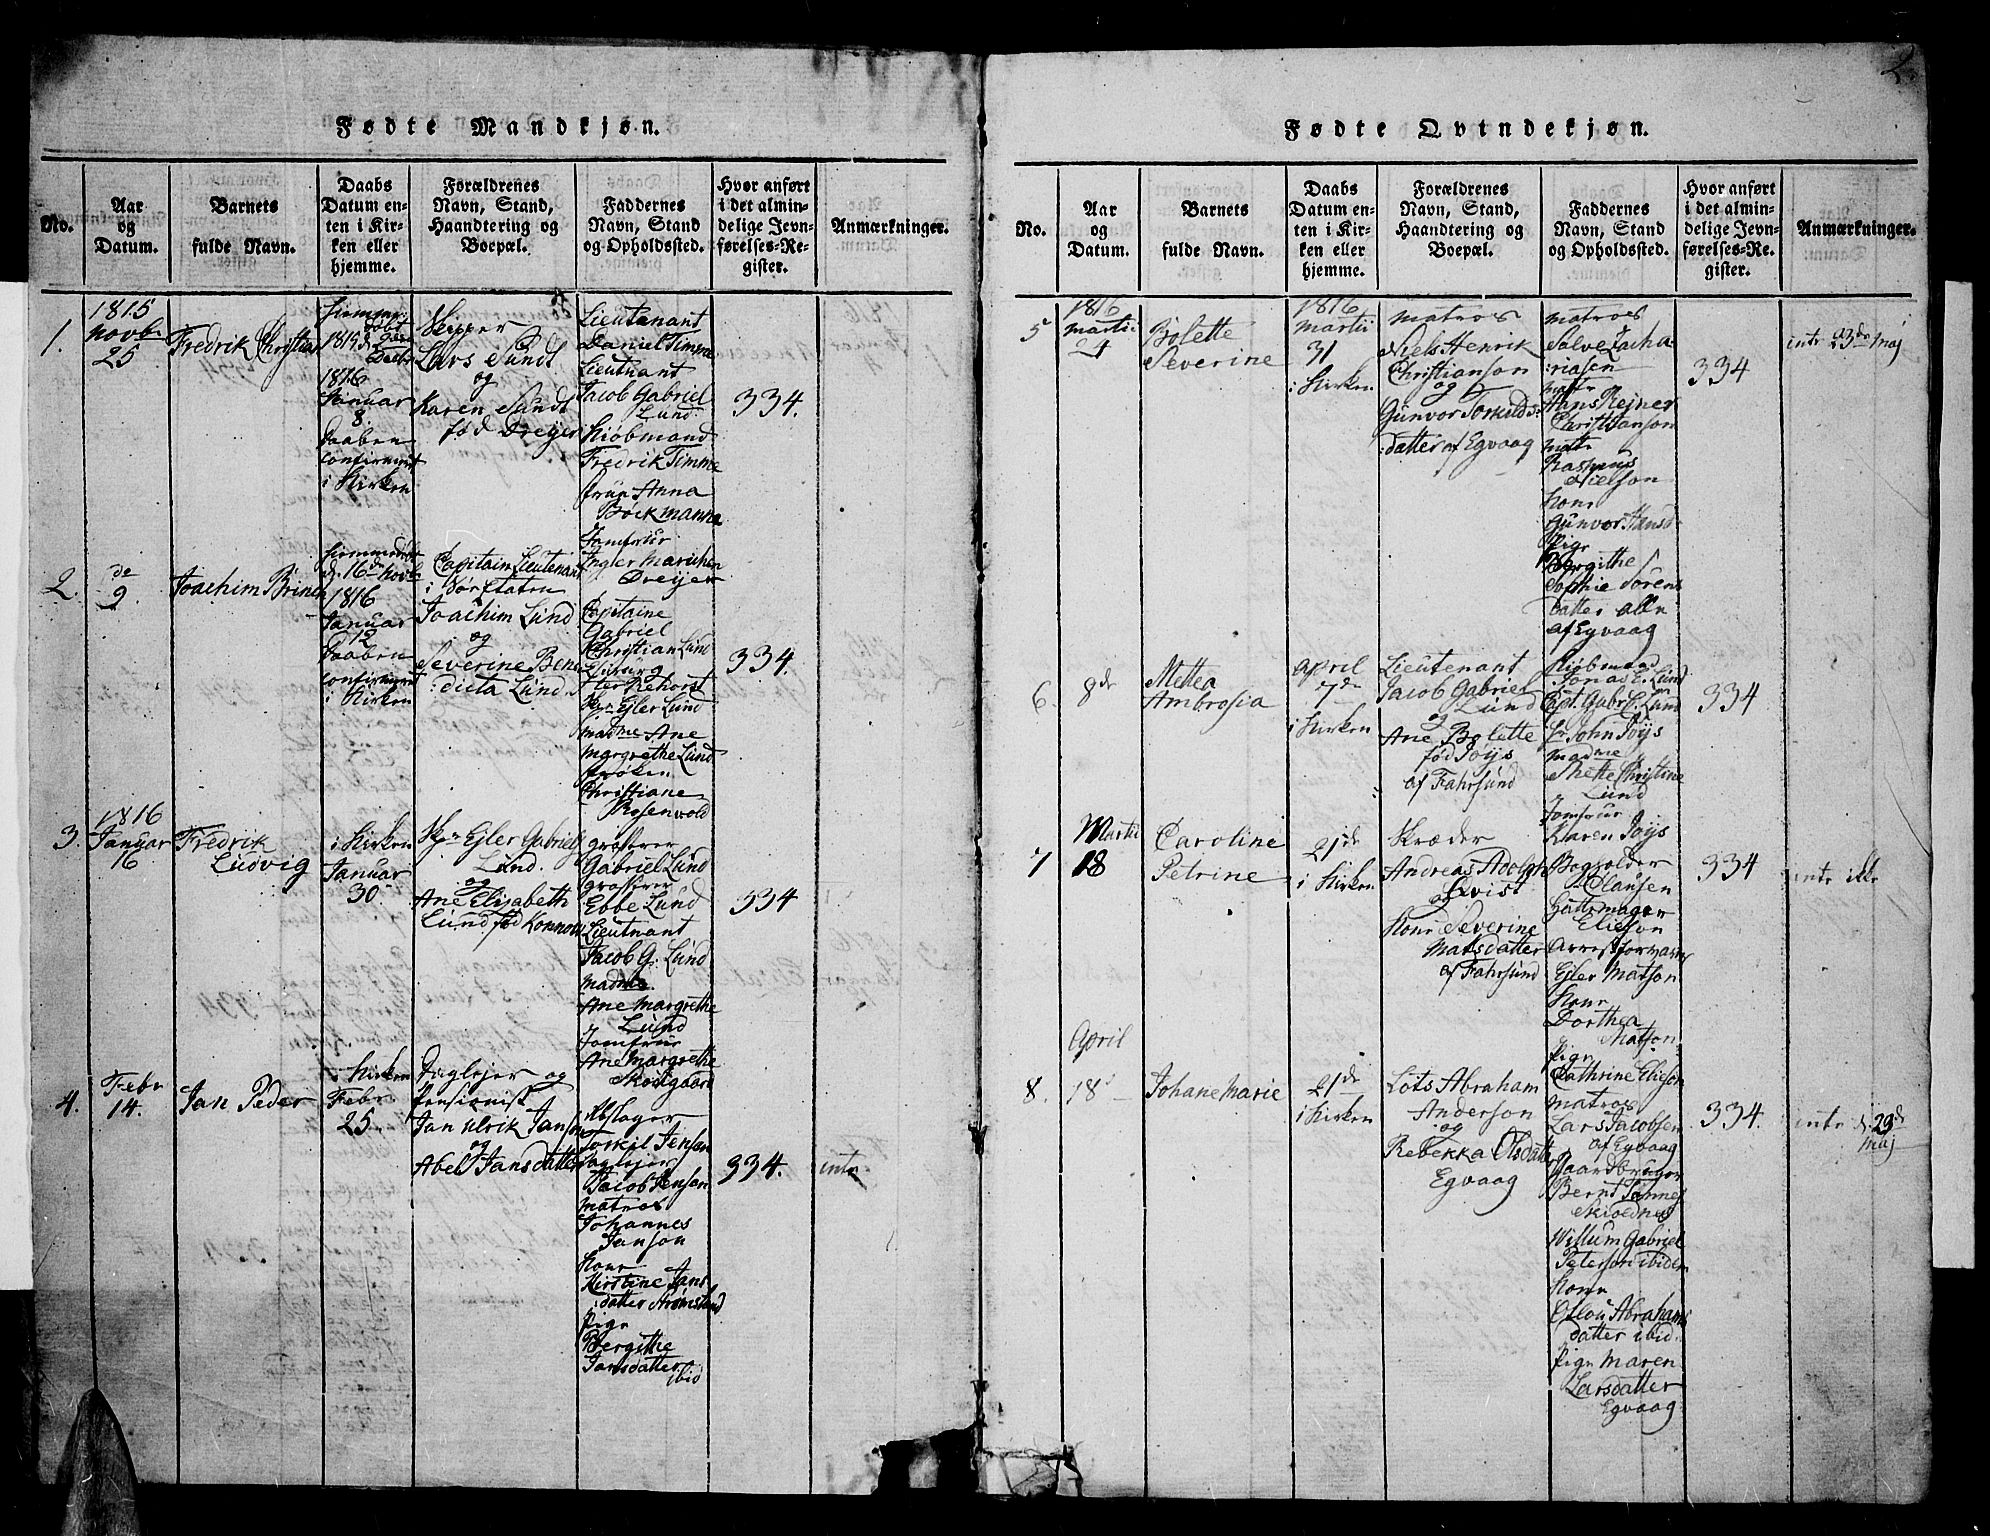 2.
Fødte Mandkjøn.
No.
Aar
og
Datum.
Barnets
fulde Navn.
Daabs
Datum en-
ten i Kir-
ken eller
hjemme.
Forældrenes
Navn, Stand,
Haandtering og
Boepæl.
Faddernes
Navn, Stand
og Opholdssted.
Hvor anført
i det almin-
delige Jevn-
førelses-Re-
gister.
Anmærkninger.
1.
1815
Novbr
25
Fredrik Christian
hiemme
døbt
1815 d.
1816
Januar
8
Daaben
confirmert
i Kirken
Skipper
Lars Sundt
og
Karen Sundt
fød Dreyer
Lieutenant
Daniel Timme
Lieutnant
Jacob Gabriel
Lund.
Kiøbmand
Fredrik Timme
Frue Anna
Bockmanne
Jomfrue
Dreyer
334.
2.
do
9
Joachim Brinch
hiemmedøbt
d. 16de Novbr
1816
Januar
12
Daaben
confirmert
i Kirken
Capitain Lieutenant
i Søe Etaten
Joachim Lund
og
Severine Bene
:dicta Lund.
Capitaine
Gabriel
Christian Lund
Flisburg
Hr Rehorst
Skpr Ejler Lund
Madme Ane
Margrethe Lund
Frøken
Christiane
Rosenvold
334.
3.
1816
Januar
16
Fredrik
Ludvig
i Kirken
Januar
30
Skpr Ejler Gabriel
Lund.
og
Ane Elisabeth
Lund fød Konnow
grosserer
Gabriel Lund
grosserer
Ebbe Lund
Lieutnant
Jacob G. Lund
Madme.
Ane Margrethe
Lund
Jomfrue
Ane Margrethe
334
4.
Febr
14.
Jan Peder
i Kirken
Febr
25
Daglejer og
Pensionist
Jan Ulrik Janson
og
Abel Jansdatter
Torkil Jenson
Daglejer
Jacob Jenson
Matros
Johannes
Janson
Kone
Kirstine Jans
:datter
Pige
Bergithe
Jansdatter
ibid
334.
intr
Fødte Qvindekjøn.
No.
Aar
og
Datum.
Barnets
fulde Navn.
Daabs
Datum en-
ten i Kir-
ken eller
hjemme.
Forældrenes
Navn, Stand,
Haandtering og
Boepæl.
Faddernes
Navn, Stand
og Opholdssted.
Hvor anført
i det almin-
delige Jevn-
førelses-Re-
gister.
Anmærkninger.
5
1816
Martii
24
Bolette
Severine
1816
Martii
31
i Kirken
Matros
Niels Henrik
Christianson
og
Gunvor Torkilds:
:datter af Egvaag
Matros
Salve Zacha
:riasen
Matr
Hans Rejner
Christianson
Matr
Rasmus
Nielson
Kone
Gunvor Hans
Pige
Bergithe
Sophie Sörens
datter alle
af Egvaag
334
intr 23de Maj
6.
8de
Mettea
Ambrosia
April
7de
i Kirken
Lieutenant
Jacob Gabriel
Lund
og
Ane Bolette
fød Jöys
af Fahrsund
Kiöbmand
Jonas E. Lund
Capt. Gabr. C. Lund
Sr John Jöys
Madme
Mette Christine
Lund
Jomfrue
Karen Jöys
334
7
Martii
18
Caroline
Petrine
21de
i Kirken
Skræder
Andreas Adolph
Qvist
og
Kone Severine
Matsdatter
af Fahrsund
Bogholder
Clausen
Hattemager
Elieson
Arrestforvarer
Ejler Matson
Kone
Dorthea
Matson
Pige
Cathrine Elieson
334
intr ikke
8.
April
18
Johane Marie
21de
i Kirken
Lots Abraham
Anderson
og
Rebekka Olsdatter
Egvaag
Matros
Lars Jacobsen
af Egvaag
Gaardbruger
Bernt Tönnes
Skioldnes
Willum Gabriel
Peterson ibidem
Kone
Abrahams
datter ibid.
Pige Maren
Larsdatter
Egvaag
334.
intr d. 23de
Maj